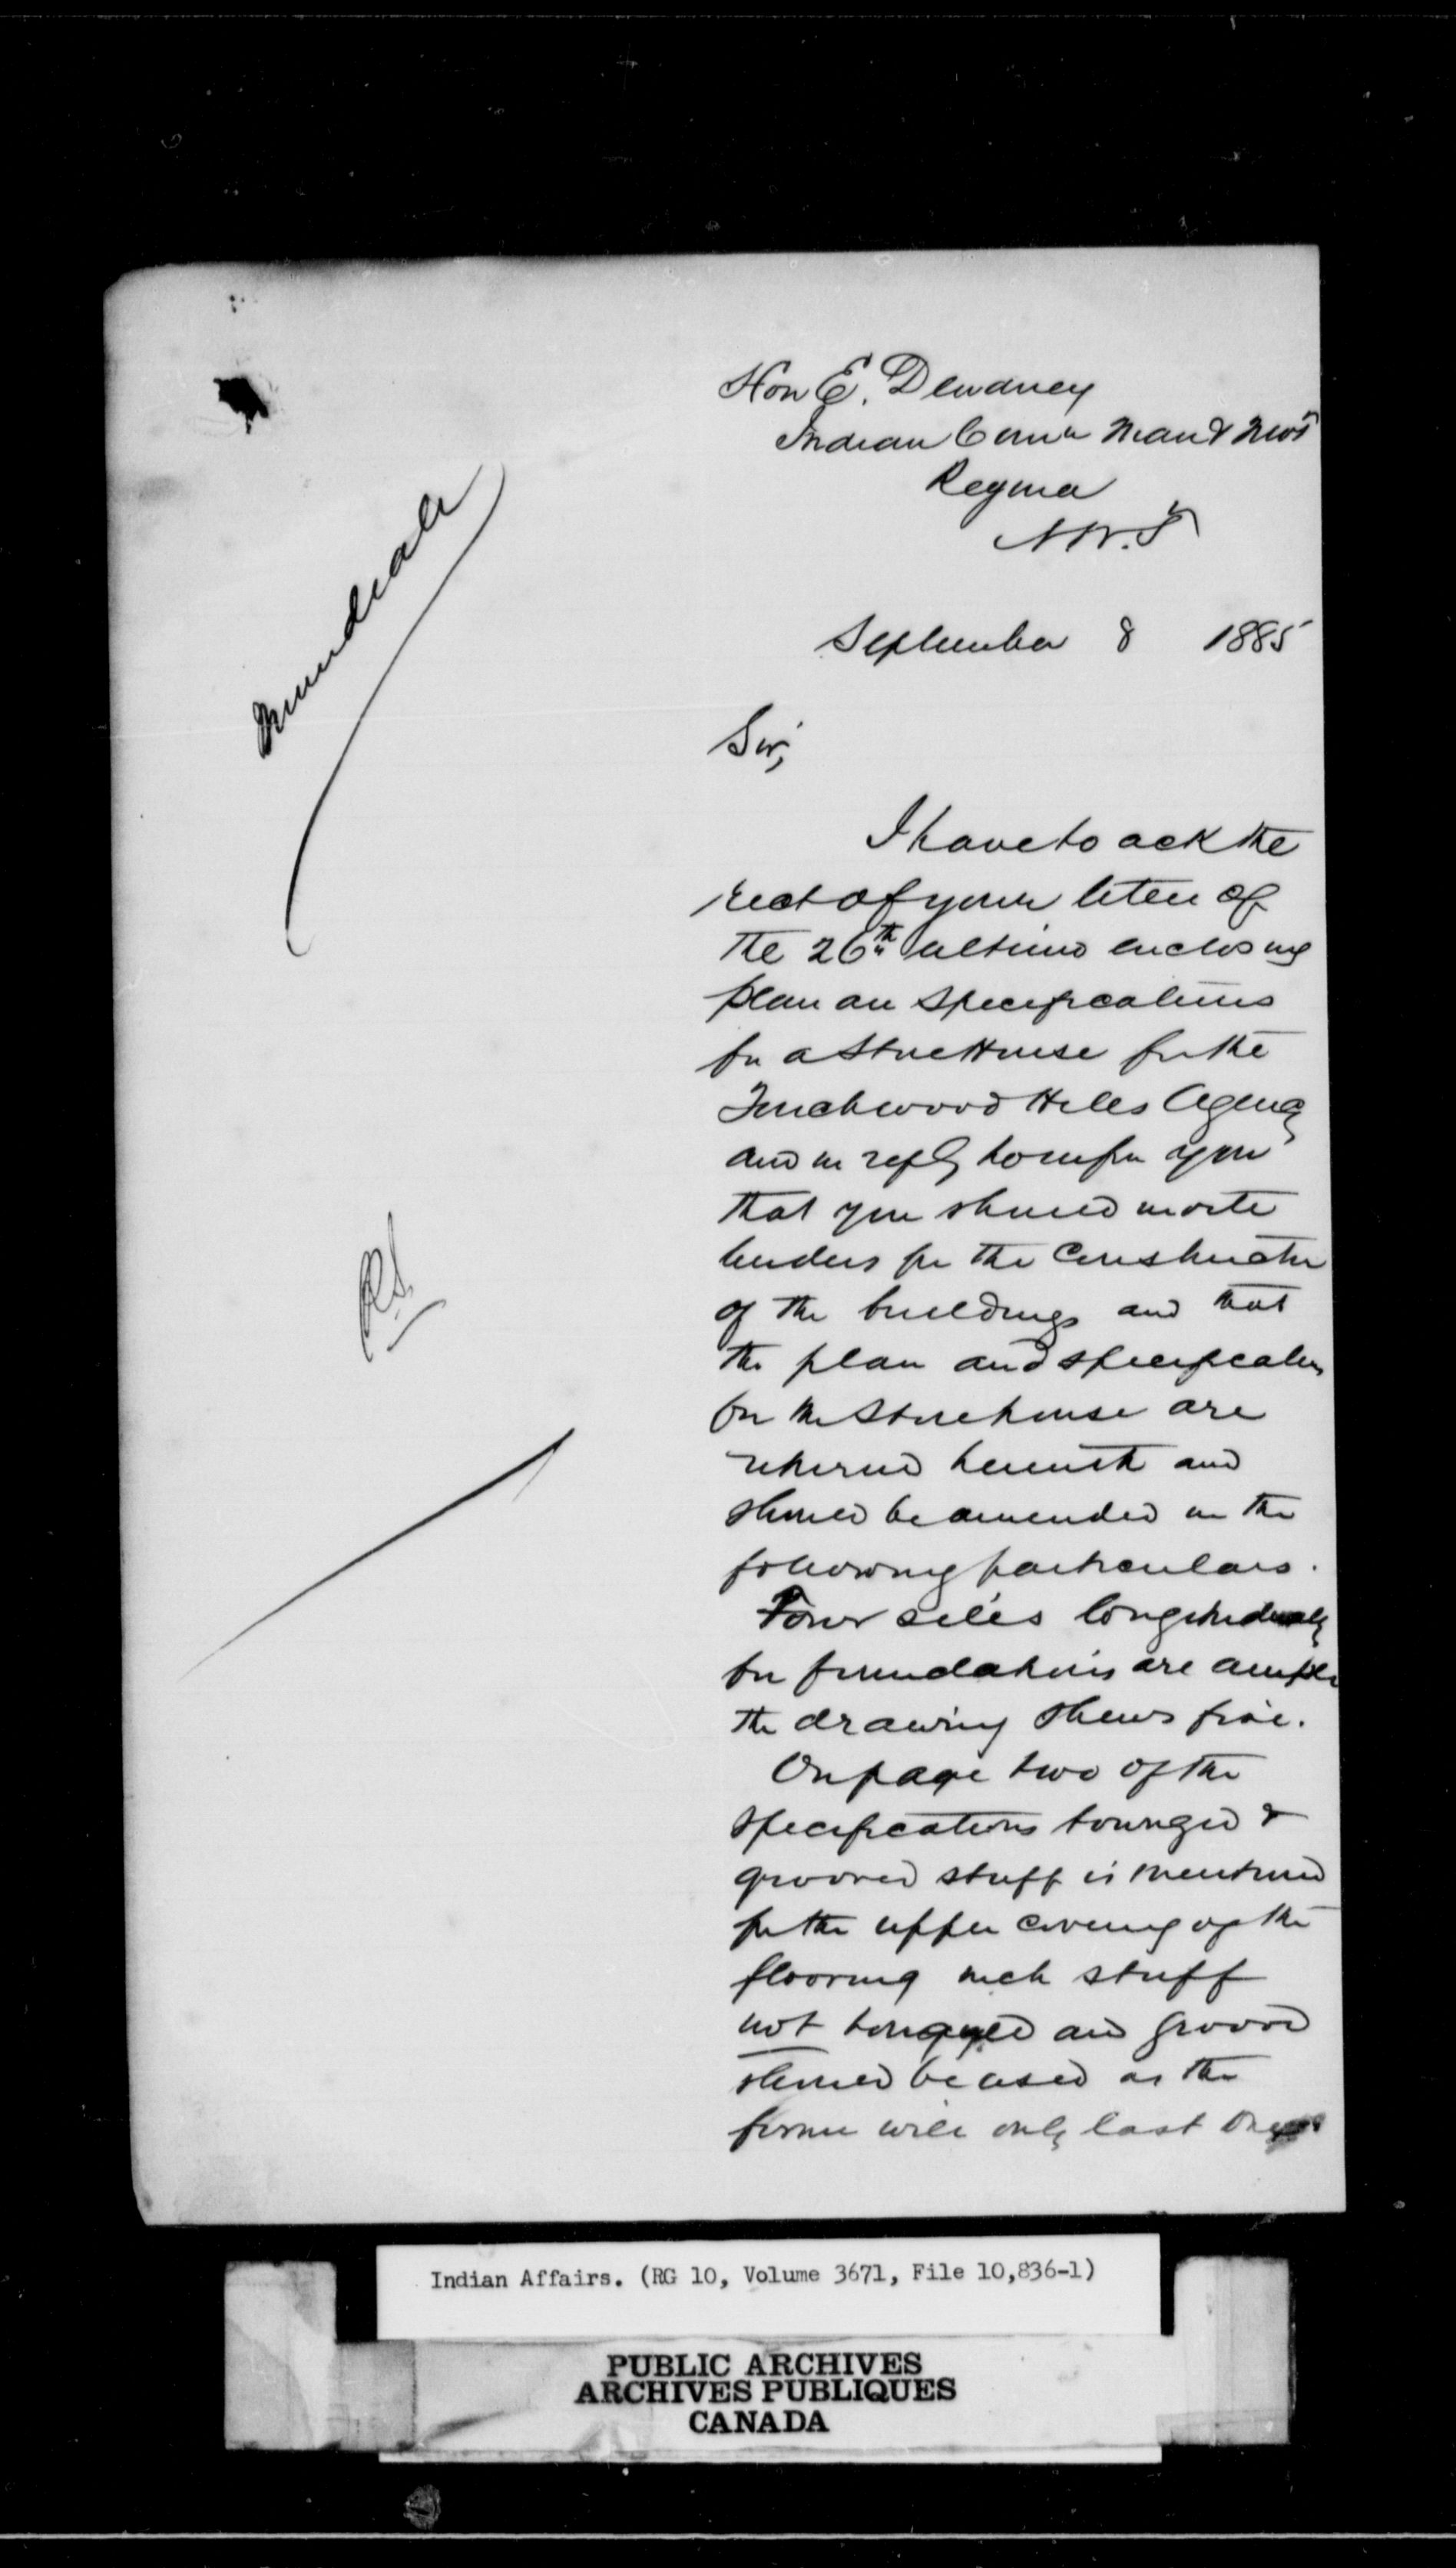 Hon E. Dewdney
Indian Comr Man & NWT
Regina
N.W.T
Immediate
September 8 1885
Sir,
I have to ack the
rect of your letter of
the 26th ultimo enclosing
plan and specifications
for a StoreHouse for the
Touchwood Hills Agency
and in reply to inform you
that you should invite
tenders for the construction
of the buildings and that
the plan and specification
for the Storehouse are
returned herewith and
should be amended in the
following particulars.
Four sills longitudinally
for foundations are ample
the drawing shews five.
On page two of the
specifications tounged &
grooved stuff is mentioned
for the upper covering of the
flooring inch stuff
not tongued and grooved
should be used as the
former will only last
Indian Affairs. (RG 10, Volume 3671, File 10,836-1)
PUBLIC ARCHIVES
ARCHIVES PUBLIQUES
CANADA